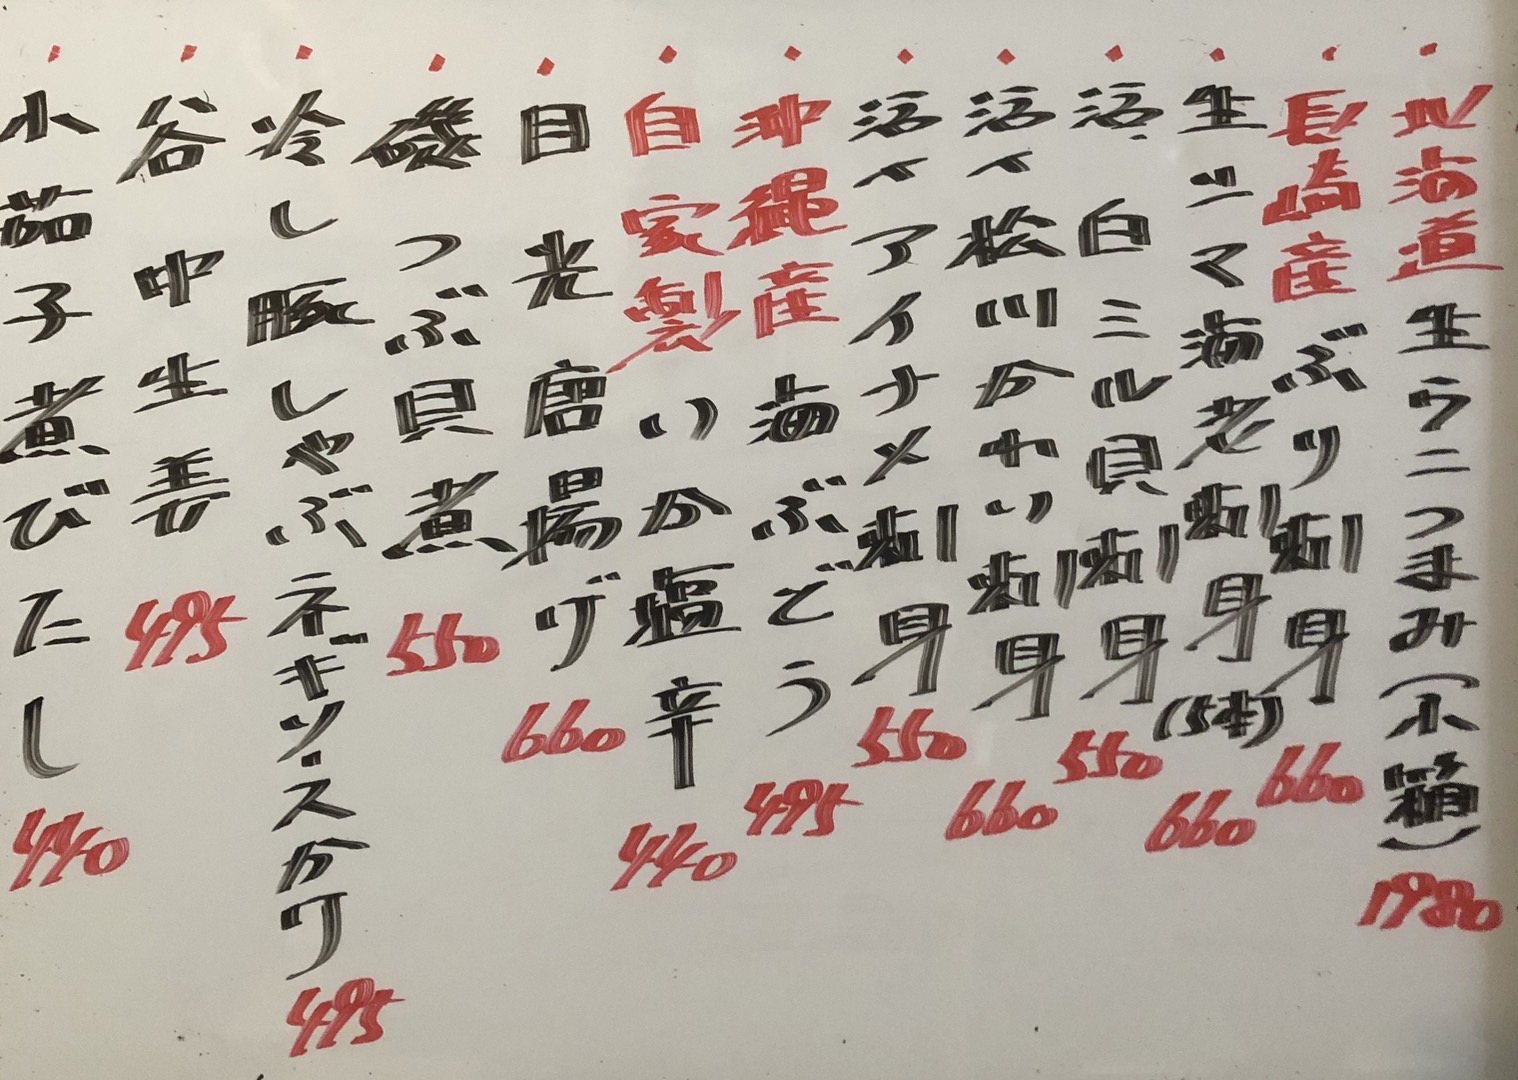 ・北海道生ウニつまみ(小箱) 1980
・長崎産ぶり刺身 660
・生シマ海老刺身(5本) 660
・活白ミル貝刺身 550
・活〆松川かれい刺身 660
・活〆アイナメ刺身 550
・沖縄産海ぶどう 495
・自家製いか塩辛 440
・目光唐揚げ 660
・磯つぶ貝煮 550
・冷し豚しゃぶネギソースかけ 495
・谷中生姜 495
・小茄子煮びたし 440